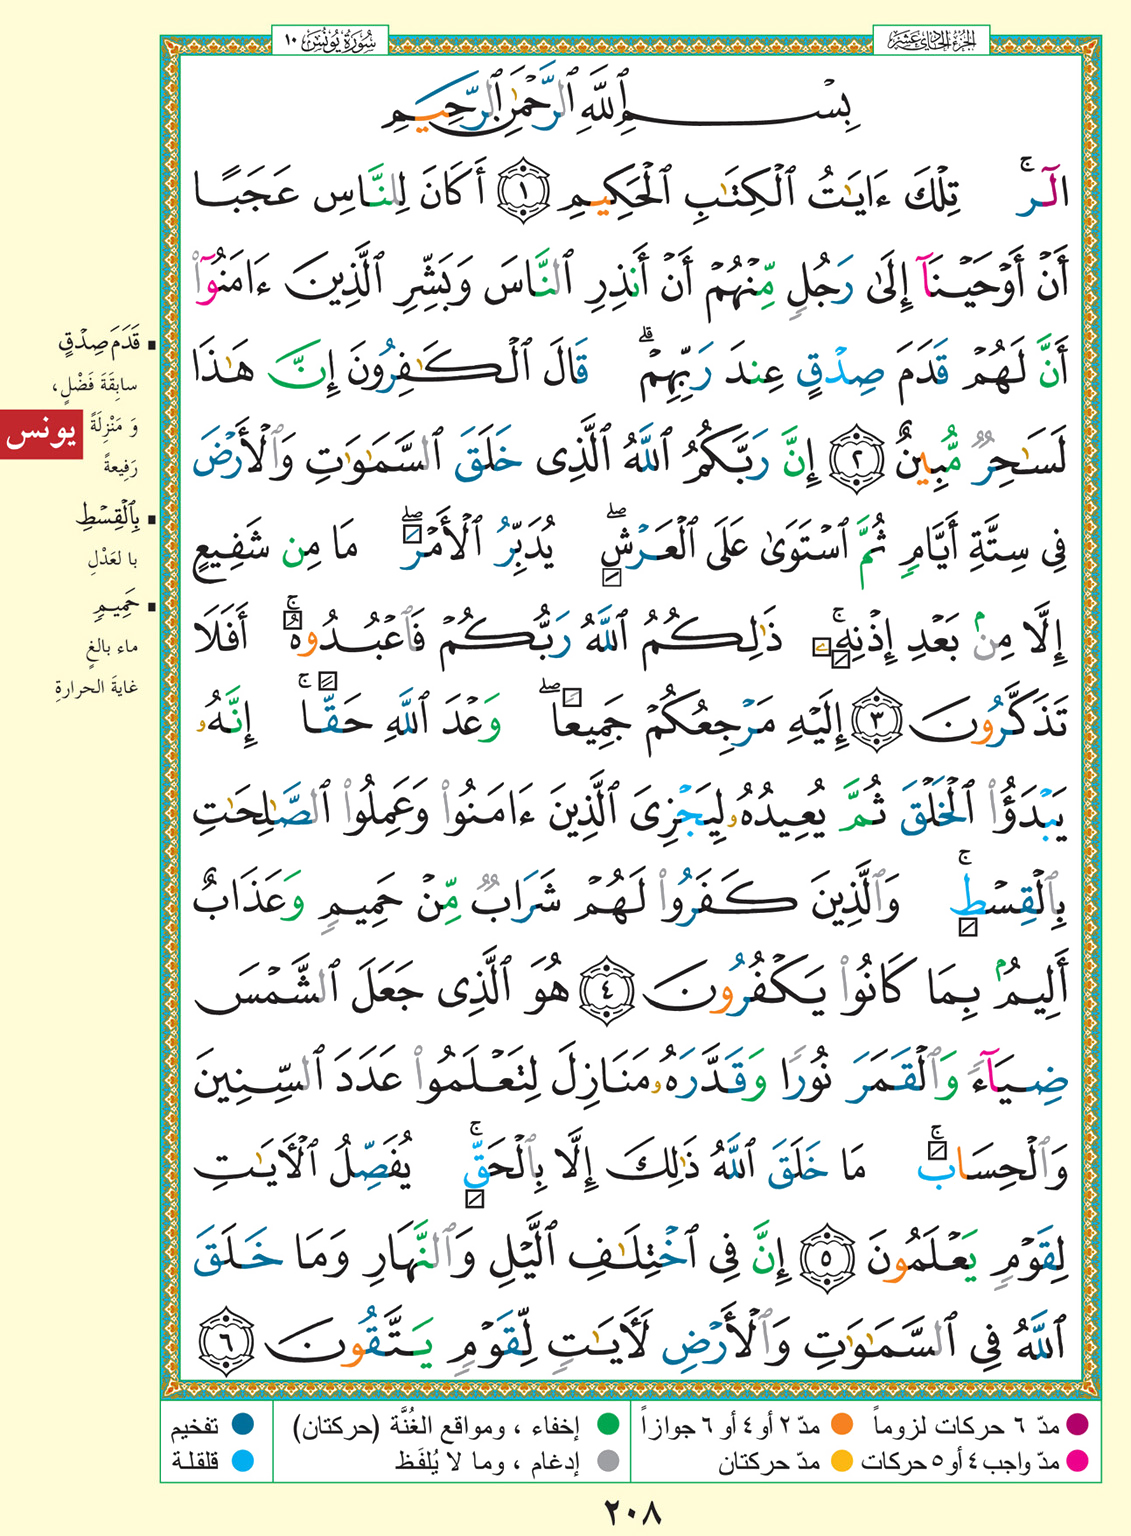 الجزء الحادي عشر
سُورَةُ يُونُسَ ١٠
بِسْمِ ٱللَّهِ ٱلرَّحْمَٰنِ ٱلرَّحِيمِ
الٓر ۚ تِلْكَ ءَايَٰتُ ٱلْكِتَٰبِ ٱلْحَكِيمِ ١ أَكَانَ لِلنَّاسِ عَجَبًا
أَنْ أَوْحَيْنَآ إِلَىٰ رَجُلٍ مِّنْهُمْ أَنْ أَنذِرِ ٱلنَّاسَ وَبَشِّرِ ٱلَّذِينَ ءَامَنُوٓا۟
أَنَّ لَهُمْ قَدَمَ صِدْقٍ عِندَ رَبِّهِمْ ۗ قَالَ ٱلْكَٰفِرُونَ إِنَّ هَٰذَا
لَسَٰحِرٌ مُّبِينٌ ٢ إِنَّ رَبَّكُمُ ٱللَّهُ ٱلَّذِى خَلَقَ ٱلسَّمَٰوَٰتِ وَٱلْأَرْضَ
فِى سِتَّةِ أَيَّامٍ ثُمَّ ٱسْتَوَىٰ عَلَى ٱلْعَرْشِ ۖ يُدَبِّرُ ٱلْأَمْرَ ۖ مَا مِن شَفِيعٍ
إِلَّا مِنۢ بَعْدِ إِذْنِهِۦ ۚ ذَٰلِكُمُ ٱللَّهُ رَبُّكُمْ فَٱعْبُدُوهُ ۚ أَفَلَا
تَذَكَّرُونَ ٣ إِلَيْهِ مَرْجِعُكُمْ جَمِيعًا ۖ وَعْدَ ٱللَّهِ حَقًّا ۚ إِنَّهُۥ
يَبْدَؤُا۟ ٱلْخَلْقَ ثُمَّ يُعِيدُهُۥ لِيَجْزِىَ ٱلَّذِينَ ءَامَنُوا۟ وَعَمِلُوا۟ ٱلصَّٰلِحَٰتِ
بِٱلْقِسْطِ ۚ وَٱلَّذِينَ كَفَرُوا۟ لَهُمْ شَرَابٌ مِّنْ حَمِيمٍ وَعَذَابٌ
أَلِيمٌۢ بِمَا كَانُوا۟ يَكْفُرُونَ ٤ هُوَ ٱلَّذِى جَعَلَ ٱلشَّمْسَ
ضِيَآءً وَٱلْقَمَرَ نُورًا وَقَدَّرَهُۥ مَنَازِلَ لِتَعْلَمُوا۟ عَدَدَ ٱلسِّنِينَ
وَٱلْحِسَابَ ۚ مَا خَلَقَ ٱللَّهُ ذَٰلِكَ إِلَّا بِٱلْحَقِّ ۚ يُفَصِّلُ ٱلْأَيَٰتِ
لِقَوْمٍ يَعْلَمُونَ ٥ إِنَّ فِى ٱخْتِلَٰفِ ٱلَّيْلِ وَٱلنَّهَارِ وَمَا خَلَقَ
ٱللَّهُ فِى ٱلسَّمَٰوَٰتِ وَٱلْأَرْضِ لَأَيَٰتٍ لِّقَوْمٍ يَتَّقُونَ ٦
قَدَمَ صِدْقٍ
سابِقَةَ فَضْلٍ،
وَ مَنْزِلَةً
رَفِيعةً
يونس
بِٱلْقِسْطِ
با لعَدْلِ
حَمِيمٍ
ماء بالغٍ
غايةَ الحرارةِ
مدّ ٦ حركات لزوماً
مدّ ٢ أو ٤ أو ٦ جوازاً
إخفاء ، ومواقع الغُنَّة (حركتان)
تفخيم
مدّ واجب ٤ أو ٥ حركات
مدّ حركتان
إدغام ، وما لا يُلفَظ
قلقلة
٢٠٨